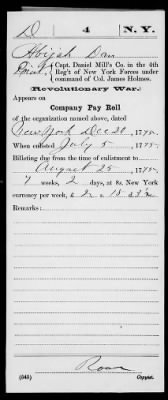 D 4 N.Y.
Abijah
Capt. Daniel Mill's Co. in the 4th
Reg't of New York Forces under
command of Col. James Holmes.
Revolutionary War.
Appears on
Company Pay Roll
of the organization named above, dated
New York Dec 20, 1775.
When enlisted July 5, 1775.
Billeting due from the time of enlistment to
August 25, 1775.
7 weeks, 2 days, at 8s, New York
currency per week, £ 2 s 18
Remarks:
(645) Copyist.